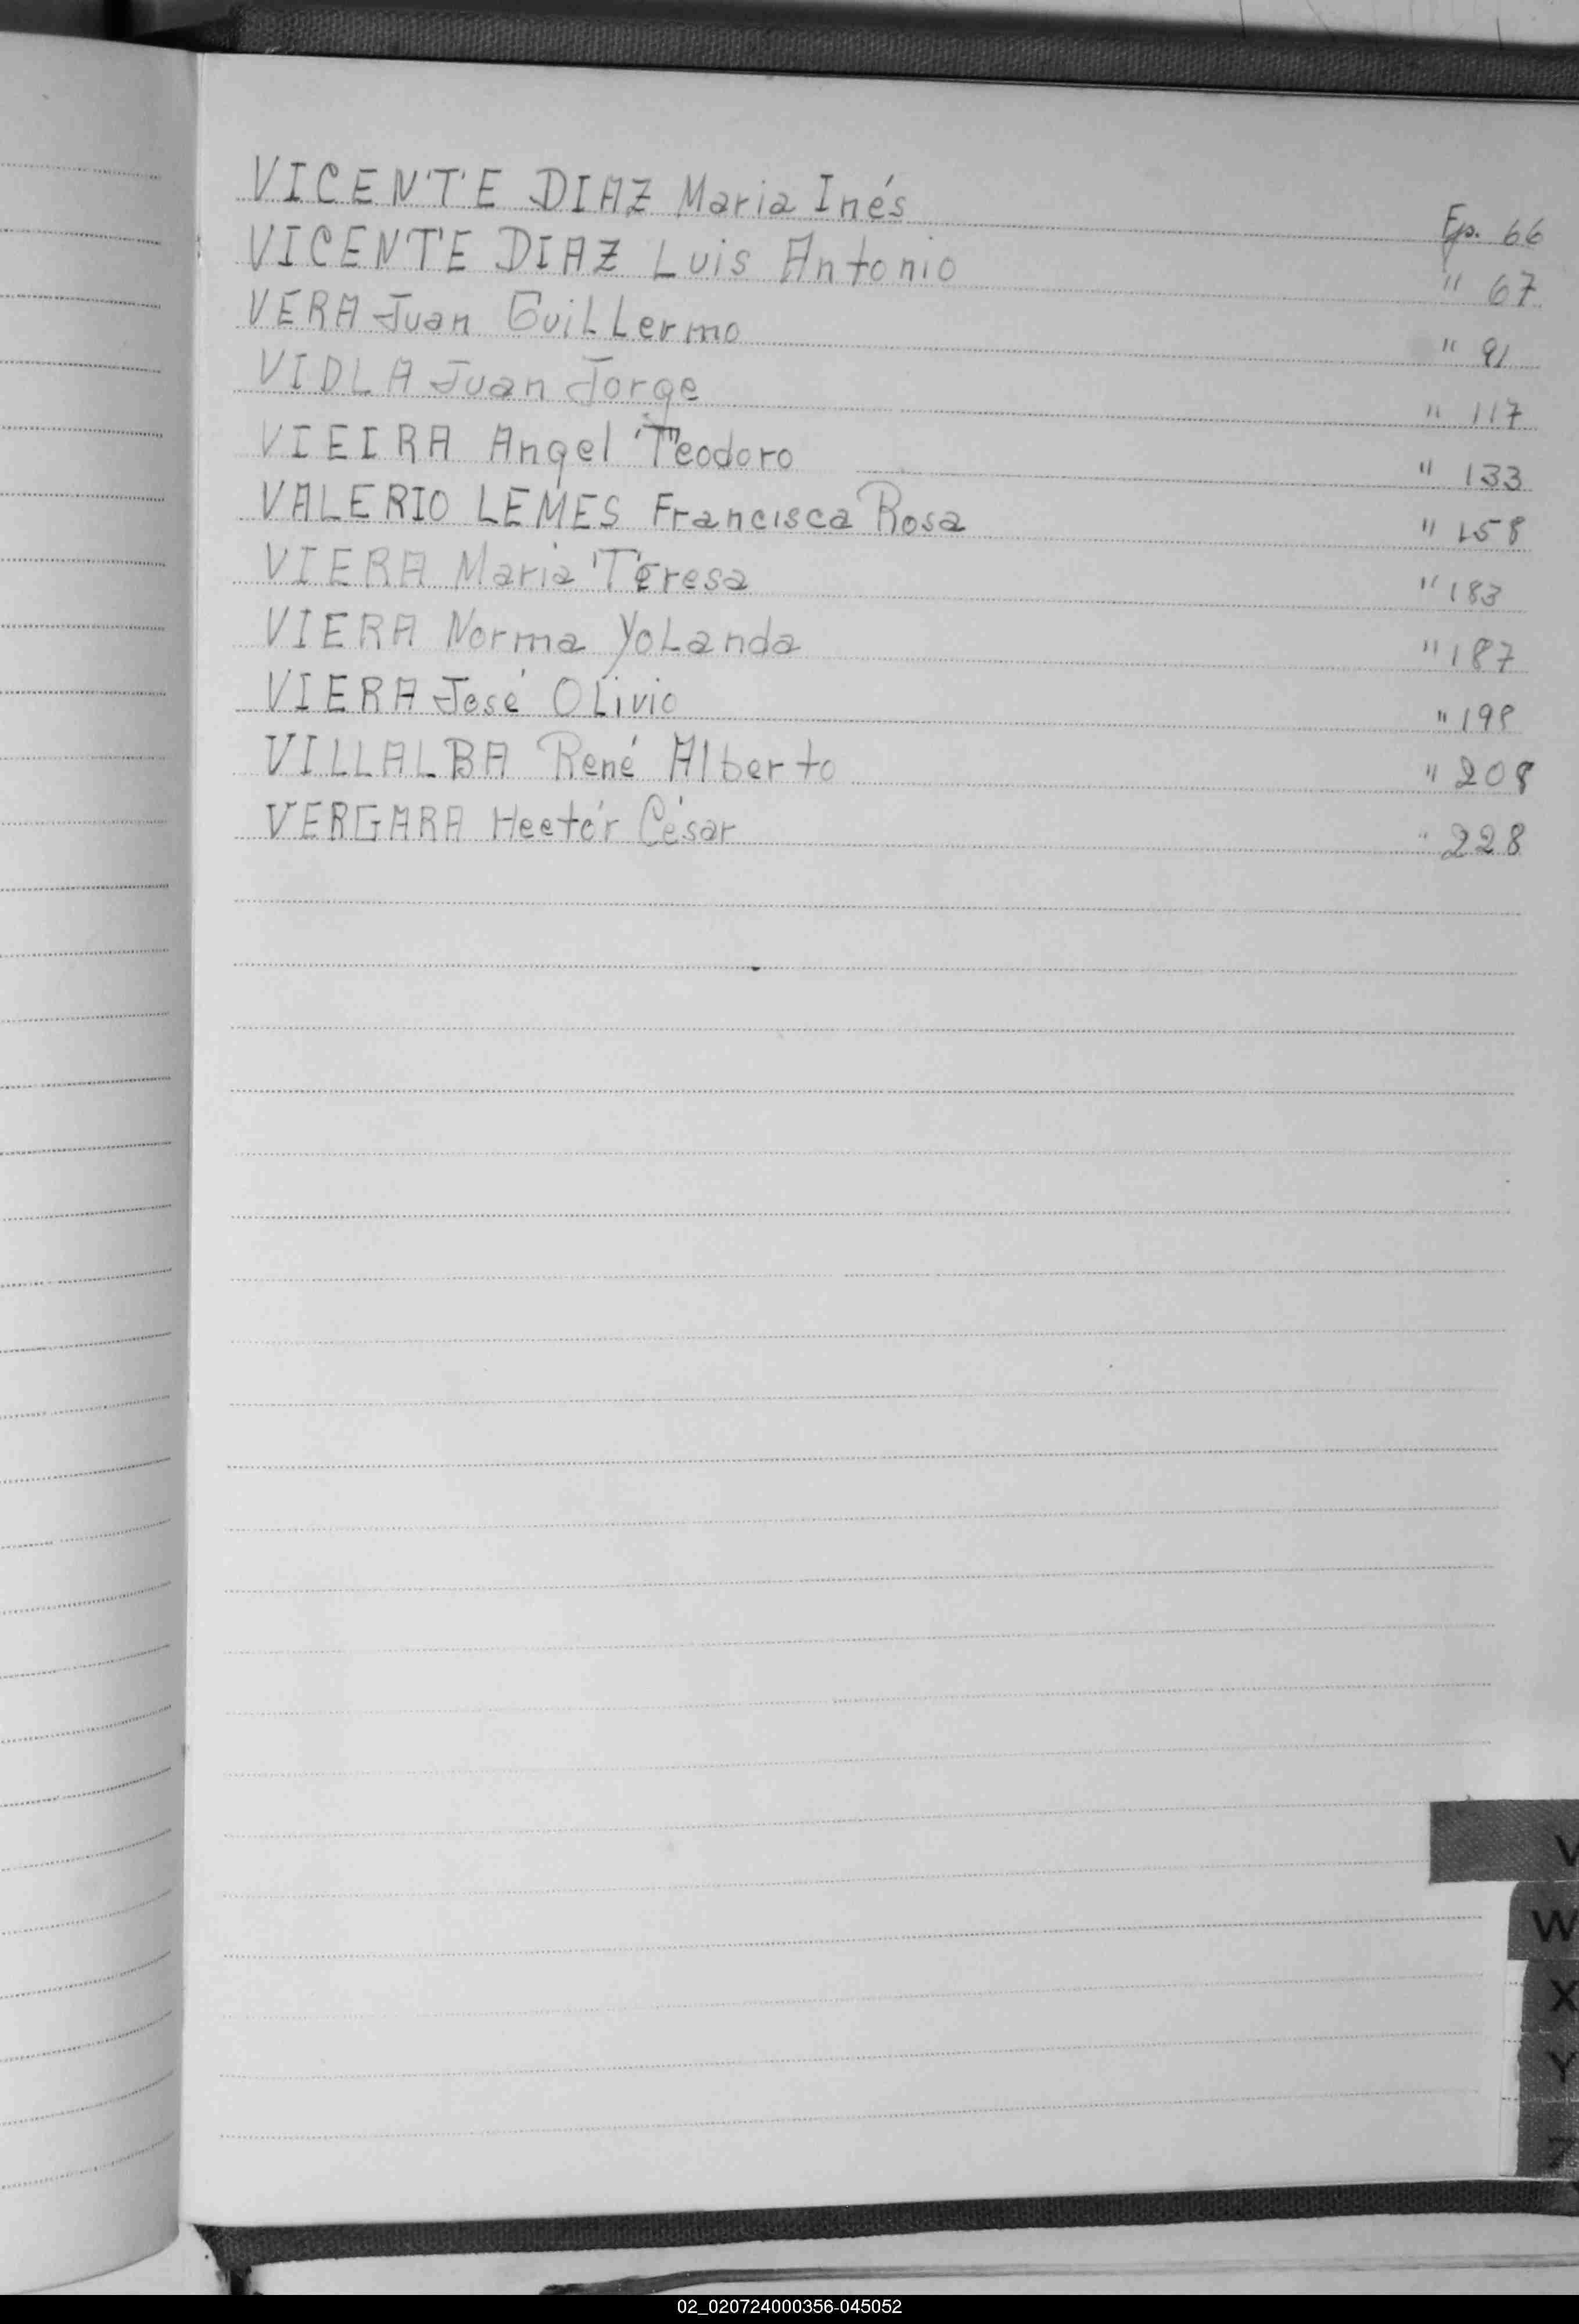 VICENTE DIAZ Maria Inés Fp. 66
VICENTE DIAZ Luis Antonio " 67
VERA Juan GuiLLermo " 91
VIDLA Juan Jorge " 117
VIEIRA Angel Teodoro " 133
VALERIO LEMES Francisca Rosa " 158
VIERA Maria Teresa " 183
VIERA Norma YoLanda " 187
VIERA José OLivio " 198
VILLALBA René Alberto " 208
VERGARA Heetór César " 228
V
W
X
Y
Z
02_020724000356-045052